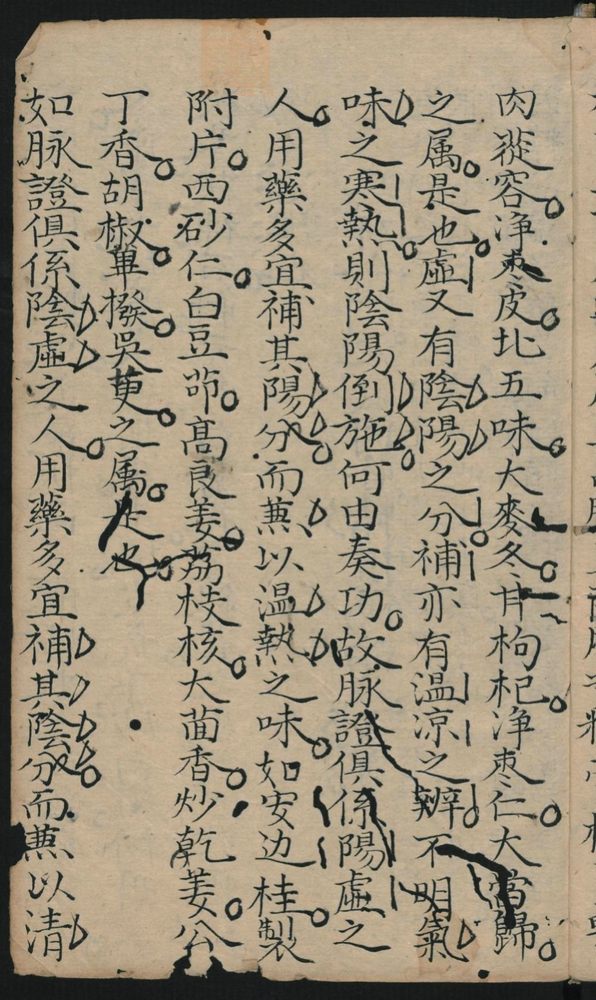 肉蓯容浄枣皮北五味大麥冬甘枸杞浄枣仁大當歸
之属是也虛又有陰陽之分補亦有温凉之辨不明氣
味之寒熱則陰陽倒施何由奏功故脉證俱係陽虛之
人用藥多宜補其陽分而蕪以温熱之味如安边桂製
附片西砂仁白豆茆髙良姜荔枝核大茴香炒乾姜公
丁香胡椒蓽撥吳萸之属是也
如脉證俱係陰虛之人用藥多宜補其陰分而蕪以清